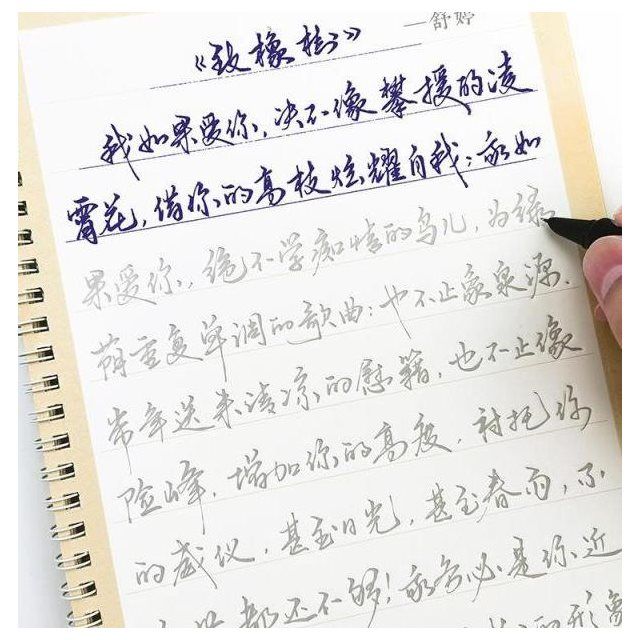 《致橡树》 —舒婷
我如果爱你,决不像攀援的凌
霄花,借你的高枝炫耀自我;我如
果爱你,绝不学痴情的鸟儿,为绿
荫重复单调的歌曲;也不止象泉源,
常年送来清凉的慰籍,也不止像
险峰,增加你的高度,衬托你
的威仪,甚至日光,甚至春雨,不,
些都还不够!我务必是你近
的形象